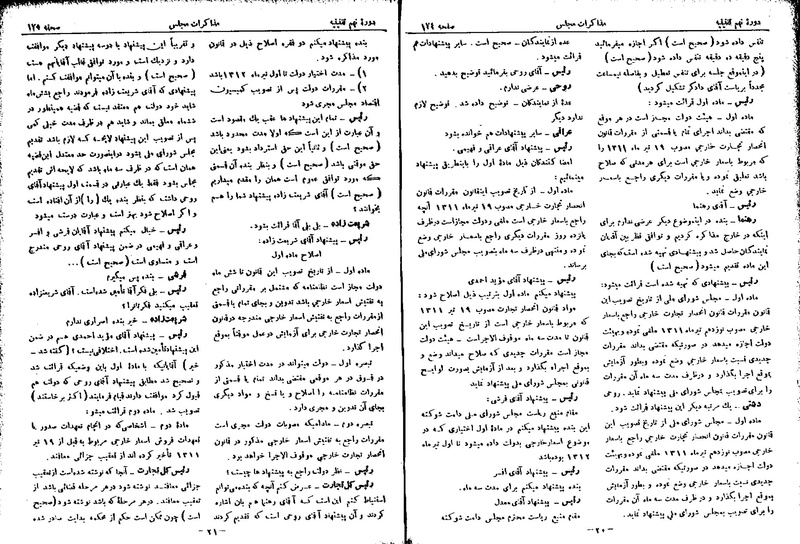 دورهٔ نهم تقنینیه
مذاکرات مجلس
صفحه ۱۲۴
تنفس داده شود (صحیح است) اگر اجازه میفرمائید
پنج دقیقه ده دقیقه تنفس داده شود (صحیح است)
(در اینموقع جلسه برای تنفس تعطیل و بفاصله نیمساعت
مجدداً بریاست آقای دادگر تشکیل گردید)
رئیس – ماده اول قرائت میشود:
ماده اول – هیئت دولت مجاز است در هر موقع
که مقتضی بداند اجرای تمام یا قسمتی از مقررات قانون
انحصار تجارت خارجی مصوب ۱۹ تیر ماه ۱۳۱۱ را
که مربوط باسعار خارجی است برای هر مدتی که صلاح
باشد تعلیق کرده و یا مقررات دیگری راجع باسعار
خارجی وضع نماید.
رئیس – آقای رهنما
رهنما – بنده در اینموضوع دیگر عرضی ندارم برای
اینکه در خارج مذاکره کردیم و توافق نظر بین آقایان
نمایندگان حاصل شد و پیشنهادی تهیه شده است که بجای
این ماده تقدیم میشود (صحیح است)
رئیس – پیشنهادی که تهیه شده است قرائت میشود:
ماده اول – مجلس شورای ملی از تاریخ تصویب این
قانون مقررات قانون انحصار تجارت خارجی راجع باسعار
خارجی مصوب نوزدهم تیر ماه ۱۳۱۱ ملغی نموده و بهیئت
دولت اجازه میدهد در صورتیکه مقتضی بداند مقررات
جدیدی نسبت باسعار خارجی وضع نموده و بطور آزمایش
بموقع اجرا بگذارد و در ظرف مدت سه ماه آن مقررات
را برای تصویب بمجلس شورای ملی پیشنهاد نماید. روحی
دشتی – یک مرتبه دیگر این پیشنهاد قرائت شود.
ماده اول – مجلس شورای ملی از تاریخ تصویب این
قانون مقررات قانون انحصار تجارت خارجی راجع باسعار
خارجی مصوب نوزدهم تیر ماه ۱۳۱۱ ملغی نموده و بهیئت
دولت اجازه میدهد در صورتیکه مقتضی بداند مقررات
جدیدی نسبت باسعار خارجی وضع نموده و بطور آزمایش
بموقع اجرا بگذارد و در ظرف مدت سه ماه آن مقررات
را برای تصویب بمجلس شورای ملی پیشنهاد نماید.
عده از نمایندگان – صحیح است. سایر پیشنهادات هم
قرائت میشود.
رئیس – آقای روحی بفرمائید توضیح بدهید.
روحی – عرضی ندارم.
عدهٔ از نمایندگان – توضیح داده شد. توضیح لازم
ندارد دیگر
عراقی – سایر پیشنهادات هم خوانده بشود
رئیس – پیشنهاد آقای عراقی و فهیمی.
امضا کنندگان ذیل مادهٔ اول را باینطریق پیشنهاد
مینمائیم:
ماده اول – از تاریخ تصویب اینقانون مقررات قانون
انحصار تجارت خارجی مصوب ۱۹ تیر ماه ۱۳۱۱ آنچه
راجع باسعار خارجی است ملغی و دولت مجاز است در ظرف
پانزده روز مقررات دیگری راجع باسعار خارجی وضع
نموده و منتهی در ظرف سه ماه بتصویب مجلس شورای ملی
برساند.
رئیس – پیشنهاد آقای مؤید احمدی
پیشنهاد میکنم ماده اول بترتیب ذیل اصلاح شود:
مواد قانون انحصار تجارت مصوب ۱۹ تیر ۱۳۱۱
راجع باسعار خارجی است از تاریخ تصویب این
قانون تا مدت سه ماه موقوف الاجراست – هیئت دولت
مجاز است مقررات جدیدی که صلاح میداند وضع و
بموقع اجراء بگذارد و بعد از آزمایش بصورت لوایح
قانونی بمجلس شورای ملی پیشنهاد نماید
رئیس – پیشنهاد آقای قرشی:
مقام منیع ریاست مجلس شورای ملی دامت شوکته
این بنده پیشنهاد میکنم در مادهٔ اول اختیاری که در
موضوع اسعار خارجی بدولت داده میشود تا اول تیر ماه
۱۳۱۲ بوده باشد
رئیس – پیشنهاد آقای افسر
بنده پیشنهاد میکنم برای مدت سه ماه.
رئیس – پیشنهاد آقای معدل
مقام منیع ریاست محترم مجلس دامت شوکته
– ۲۰ –
دورهٔ نهم تقنینیه
مذاکرات مجلس
صفحه ۱۲۵
بنده پیشنهاد میکنم دو فقره اصلاح ذیل در قانون
مورد مذاکره شود.
۱) – مدت اختیار دولت تا اول تیر ماه ۱۳۱۲ باشد
۲) – مقررات دولت پس از تصویب کمیسیون
اقتصاد مجلس مجری شود
رئیس – تمام این پیشنهاد ها عقب یک مقصود است
و آن عبارت از این است که اولا مدت محدود باشد
(صحیح است) و ثانیاً این حق استرداد بشود یعنی این
حق موقتی باشد (صحیح است) و بنظر بنده آن قسمتی
که مورد توافق عموم است همان را مقدم میداریم
(صحیح است) آقای شریعت زاده پیشنهاد شما را هم
بخوانند؟
شریعت زاده – بلی بلی آقا قرائت بشود.
رئیس – پیشنهاد آقای شریعت زاده:
اصلاح ماده اول
ماده اول – از تاریخ تصویب این قانون تا شش ماه
دولت مجاز است نظامنامه که مشتمل بر مقرراتی راجع
به تفتیش اسعار خارجی باشد تدوین و بجای تمام یا قسمتی
از مقررات راجع به تفتیش اسعار خارجی مندرجه در قانون
انحصار تجارت خارجی برای آزمایش در عمل موقتاً بموقع
اجرا گذارد.
تبصره اول – دولت میتواند در مدت اختیار مذکور
در فوق در هر موقعی مقتضی بداند تمام یا قسمتی از
مقررات نظامنامه را اصلاح و یا فسخ و مواد دیگری
بجای آن تدوین و مجری دارد.
تبصره دوم – مادامیکه مصوبات دولت مجری است
مقررات راجع به تفتیش اسعار خارجی مذکور در قانون
انحصار تجارت خارجی موقوف الاجرا خواهد بود.
رئیس – نظر دولت راجع به پیشنهاد ها چیست؟
رئیس کل تجارت – عرض کنم آنچه که بنده میتوانم
استنباط کنم این است که آقای رهنما هم بآن اشاره
کردند و آن پیشنهاد آقای روحی است که تقدیم کردند
و تقریباً این پیشنهاد با دو سه پیشنهاد دیگر موافقت
دارد و نزدیک است و مورد توافق غالب آقایان هم هست
(صحیح است) و بنده با آن میتوانم موافقت کنم. اما
پیشنهادی که آقای شریعت زاده فرمودند راجع بشش ماه
شاید خود دولت هم معتقد نیست که قضیه همینطور در
ششماه معلق بماند و شاید هم در ظرف مدت خیلی کمی
پس از تصویب این پیشنهاد لایحه که لازم باشد تقدیم
مجلس شورای ملی بشود در اینصورت حد معتدل این قضیه
همان است که در ظرف سه ماه باشد که لایحه اش تقدیم
مجلس بشود فقط یک عبارتی در قسمت اول پیشنهاد آقای
روحی داشت که بنظر بنده یک (را) از آن افتاده است
و اگر اصلاح شود بهتر است و عبارت درست میشود
رئیس – خیال میکنم پیشنهاد آقایان قرشی و افسر
و عراقی و فهیمی در ضمن پیشنهاد آقای روحی مندرج
است و متساوی است (صحیح است) ...
قرشی – بنده پس میگیرم
رئیس – بلی فکر آقا تأمین شده است. آقای شریعتزاده
تعقیب میکنید فکر تانرا؟
شریعت زاده – خیر بنده اصراری ندارم
رئیس – پیشنهاد آقای مؤید احمدی هم در ضمن
این پیشنهاد تأمین شده است. اختلافی نیست؟ (گفته شد –
خیر) آقایانیکه با مادهٔ اول باین وضعیکه قرائت شد
و تصحیح شد مطابق پیشنهاد آقای روحی که دولت هم
قبول کرد موافقت دارند قیام فرمایند (اکثر برخاستند)
تصویب شد. ماده دوم قرائت میشود:
مادهٔ دوم – اشخاصی که در انجام تعهدات صدور یا
تعهدات فروش اسعار خارجی مربوط به قبل از ۱۹ تیر
۱۳۱۱ تأخیر کرده اند از تعقیب جزائی معافند.
رئیس کل تجارت – آنجا که نوشته شده است از تعقیب
جزائی معافند نوشته شود در هر مرحلهٔ قضائی باشد از
تعقیب معافند. در هر مرحلهٔ که باشد نوشته شود (صحیح
است) چون ممکن است حکم از محکمه بدایت صادر شده
– ۲۱ –